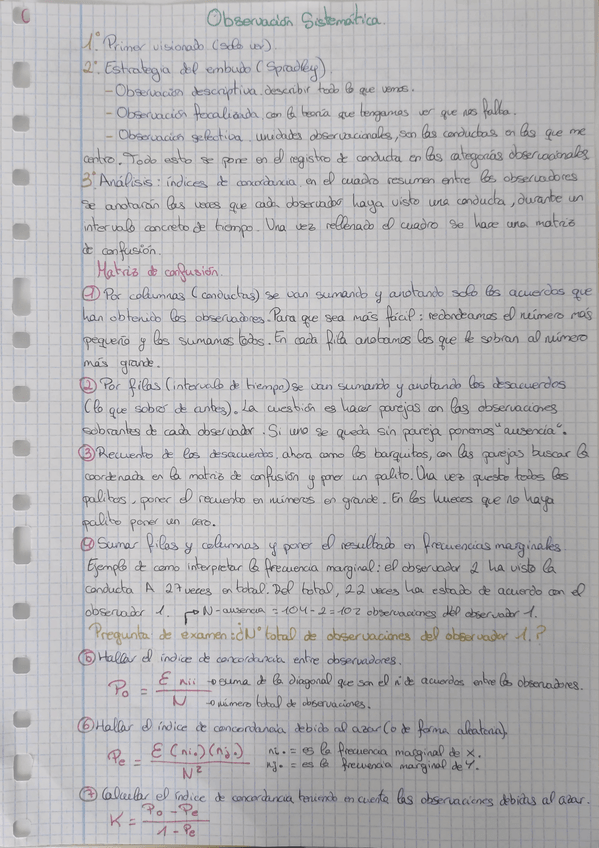 Observación Sistemática.
1º Primer visionado (solo ver).
2º Estrategia del embudo (Spradley)
- Observación descriptiva, describir todo lo que vemos.
- Observación focalizada, con la teoría que tengamos ver que nos falta.
- Observación selectiva, unidades observacionales, son las conductas en las que me
centro. Todo esto se pone en el registro de conducta en las categorías observacionales.
3º Análisis: índices de concordancia en el cuadro resumen entre los observadores
se anotarán las veces que cada observador haya visto una conducta, durante un
intervalo concreto de tiempo. Una vez rellenado el cuadro se hace una matriz
de confusión.
Matriz de confusión.
① Por columnas (conductas) se van sumando y anotando solo los acuerdos que
han obtenido los observadores. Para que sea más fácil: redondeamos el número más
pequeño y los sumamos todos. En cada fila anotamos los que le sobran al número
más grande.
② Por filas (intervalo de tiempo) se van sumando y anotando los desacuerdos
(lo que sobró de antes). La cuestión es hacer parejas con las observaciones
sobrantes de cada observador. Si uno se queda sin pareja ponemos "ausencia".
③ Recuento de los desacuerdos, ahora como los barquitos, con las parejas buscar la
coordenada en la matriz de confusión y poner un palito. Una vez puesto todos los
palitos, poner el recuento en números en grande. En los huecos que no haya
palito poner un cero.
④ Sumar filas y columnas y poner el resultado en frecuencias marginales.
Ejemplo de como interpretar la frecuencia marginal: el observador 2 ha visto la
conducta A 27 veces en total. Del total, 22 veces ha estado de acuerdo con el
observador 1. → N-ausencia = 104-2 = 102 observaciones del observador 1.
Pregunta de examen: ¿Nº total de observaciones del observador 1.?
⑤ Hallar el índice de concordancia entre observadores.
Po = Σ nii / N → suma de la diagonal que son el nº de acuerdos entre los observadores.
→ número total de observaciones.
⑥ Hallar el índice de concordancia debido al azar (o de forma aleatoria).
Pe = Σ (ni.) (nj.) / N² ni. = es la frecuencia marginal de X.
nj. = es la frecuencia marginal de Y.
⑦ Calcular el índice de concordancia teniendo en cuenta las observaciones debidas al azar.
K = Po - Pe / 1 - Pe